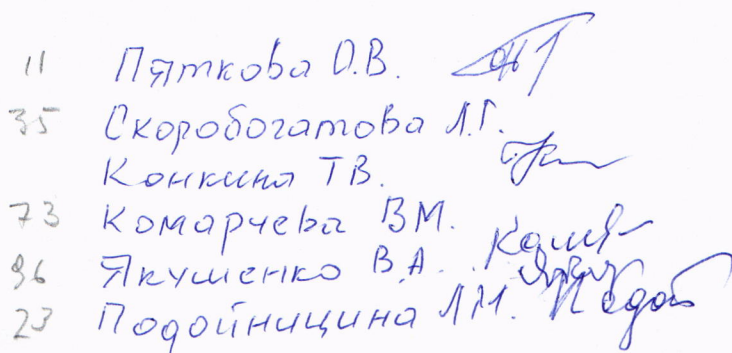 11 Пяткова О.В.
35 Скоробогатова Л.Г.
Конкина Т В.
73 Комарчева В М.
96 Якушенко В.А.
23 Подойницина Л М.